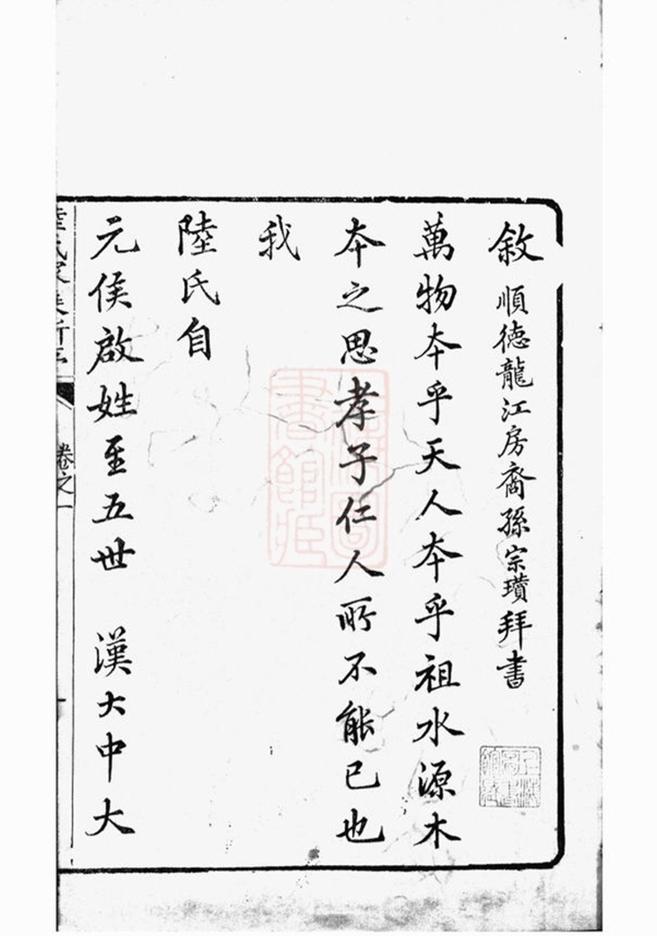 敘 順德龍江房裔孫宗瓚拜書
萬物本乎天人本乎祖水源木
本之思孝子仁人所不能已也
我
陸氏自
元侯啟姓至五世 漢大中大
卷之一